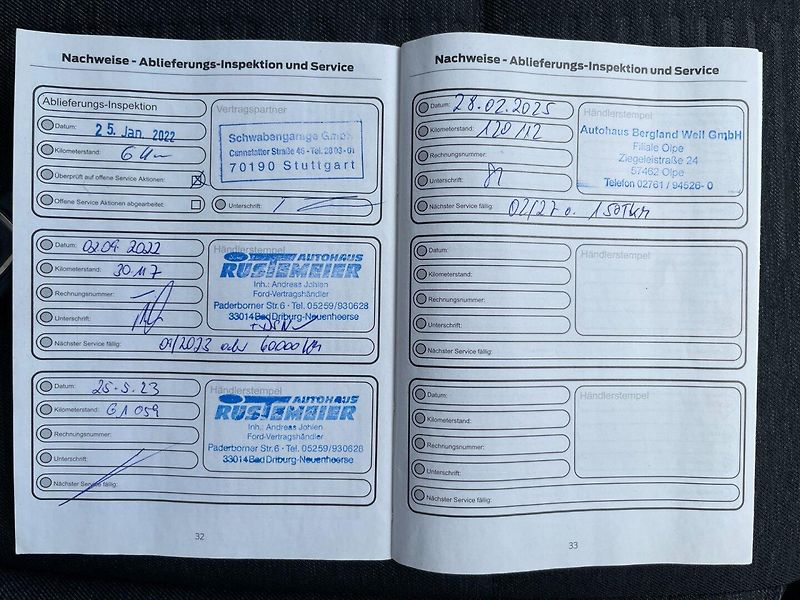 Nachweise - Ablieferungs-Inspektion und Service
Ablieferungs-Inspektion
Datum: 25. Jan. 2022
Kilometerstand: 6 Km
Überprüft auf offene Service Aktionen:
Offene Service Aktionen abgearbeitet:
Vertragspartner
Schwabengarage GmbH
Cannstatter Straße 46 - Tel. 28 03-01
70190 Stuttgart
Unterschrift:
Datum: 02.09.2022
Kilometerstand: 30 117
Rechnungsnummer:
Unterschrift:
Händlerstempel
AUTOHAUS
RUSTEMEIER
Inh.: Andreas Johlen
Ford-Vertragshändler
Paderborner Str. 6 · Tel. 05259/930628
33014 Bad Driburg-Neuenheerse
Nächster Service fällig: 09/2023 oder 60000 Km
Datum: 25.5.23
Kilometerstand: 61059
Rechnungsnummer:
Unterschrift:
Händlerstempel
AUTOHAUS
RUSTEMEIER
Inh.: Andreas Johlen
Ford-Vertragshändler
Paderborner Str. 6 · Tel. 05259/930628
33014 Bad Driburg-Neuenheerse
Nächster Service fällig:
32
Nachweise - Ablieferungs-Inspektion und Service
Datum: 28.02.2025
Kilometerstand: 120112
Rechnungsnummer:
Unterschrift:
Händlerstempel
Autohaus Bergland Weil GmbH
Filiale Olpe
Ziegeleistraße 24
57462 Olpe
Telefon 02761 / 94526- 0
Nächster Service fällig: 02/27 o. 150TKM
Datum:
Kilometerstand:
Rechnungsnummer:
Unterschrift:
Händlerstempel
Nächster Service fällig:
Datum:
Kilometerstand:
Rechnungsnummer:
Unterschrift:
Händlerstempel
Nächster Service fällig:
33